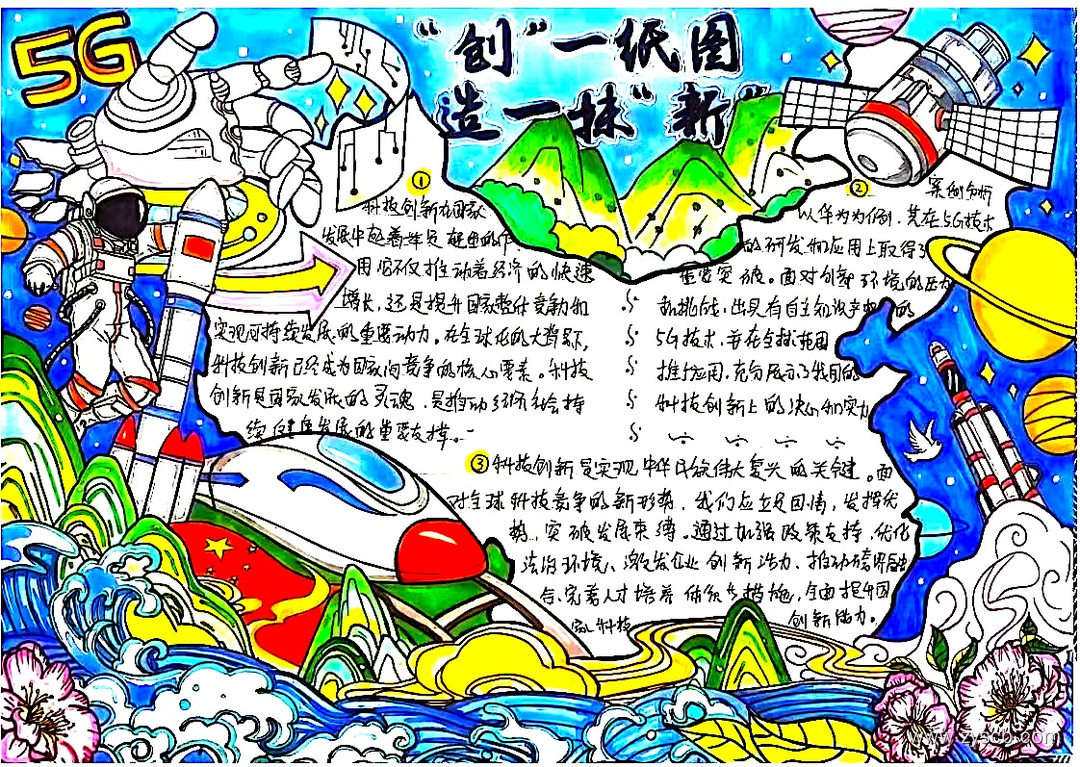 5G
“创”一纸图
造一抹“新”
①
科技创新在国家
发展中起着举足轻重的作
用。它不仅推动着经济的快速
增长，还是提升国家整体竞争力和
实现可持续发展的重要动力。在全球化的大背景下，
科技创新已经成为国家间竞争的核心要素。科技
创新是国家发展的灵魂，是推动经济社会持
续健康发展的重要支撑。
②
案例分析
以华为为例，其在5G技术
的研发和应用上取得了
重要突破。面对创新环境的压力
和挑战，出具有自主知识产权的
5G技术，并在全球范围
推广应用，充分展示了我国的
科技创新上的决心和实力
③科技创新是实现中华民族伟大复兴的关键。面
对全球科技竞争的新形势，我们应立足国情，发挥优
势，突破发展束缚。通过加强政策支持、优化
法治环境、激发企业创新活力、推动跨界融
合、完善人才培养体系等措施，全面提升国
家科技
创新能力。
www.zyscb.com